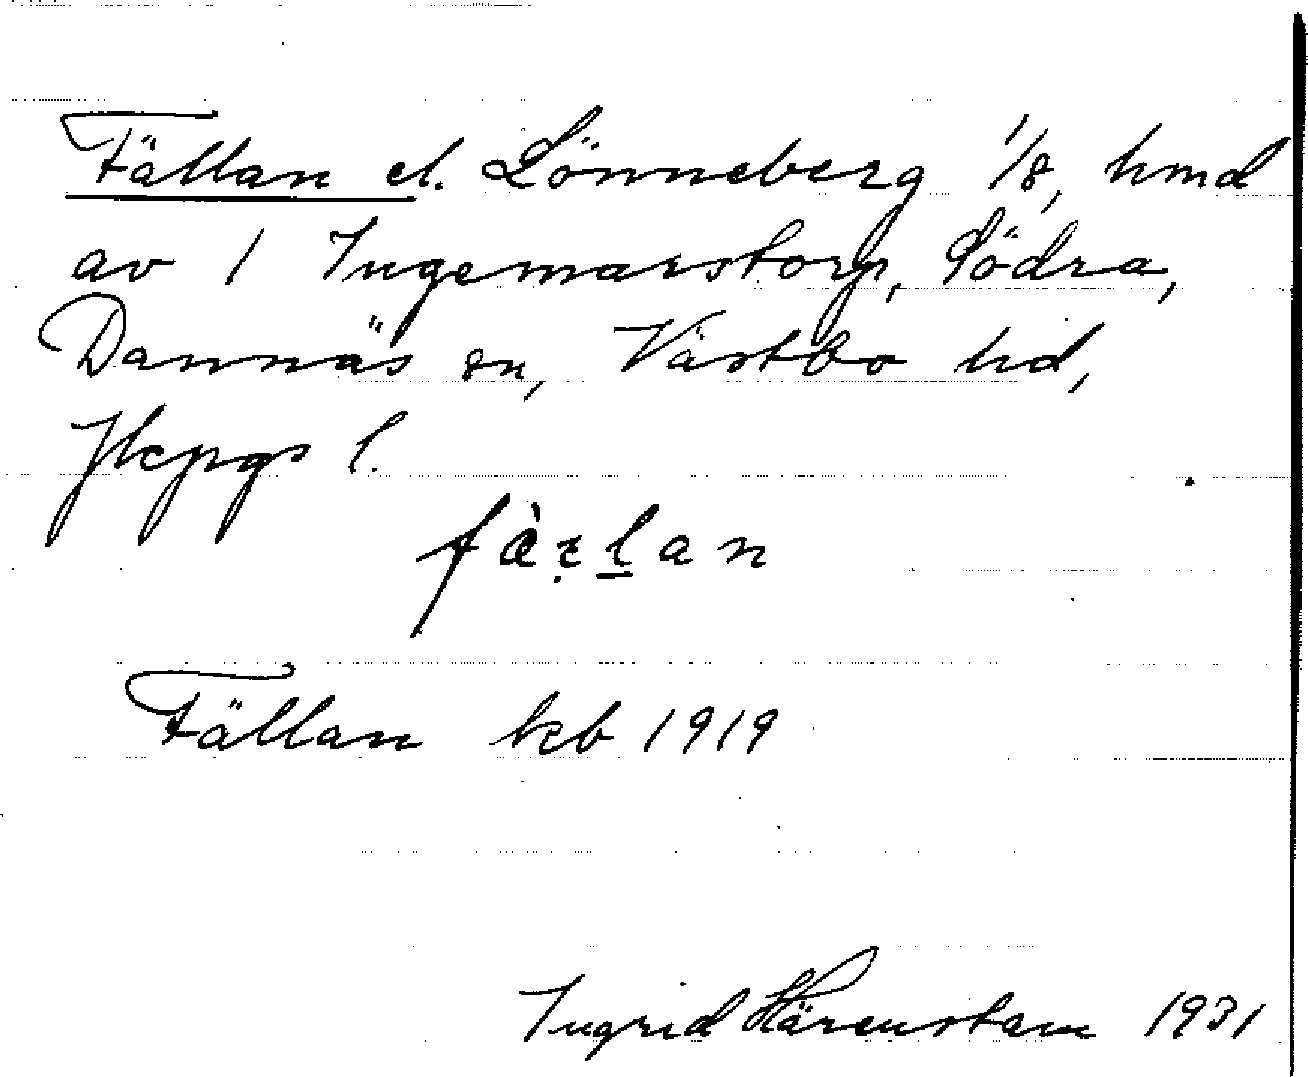 Fällan el. Lönneberg 1/8, hmd
av 1 Ingemarstorp, Södra,
Dannäs sn, Västbo hd,
Jkpgs l.
Fällan kb 1919
Ingrid Härenstam 1931